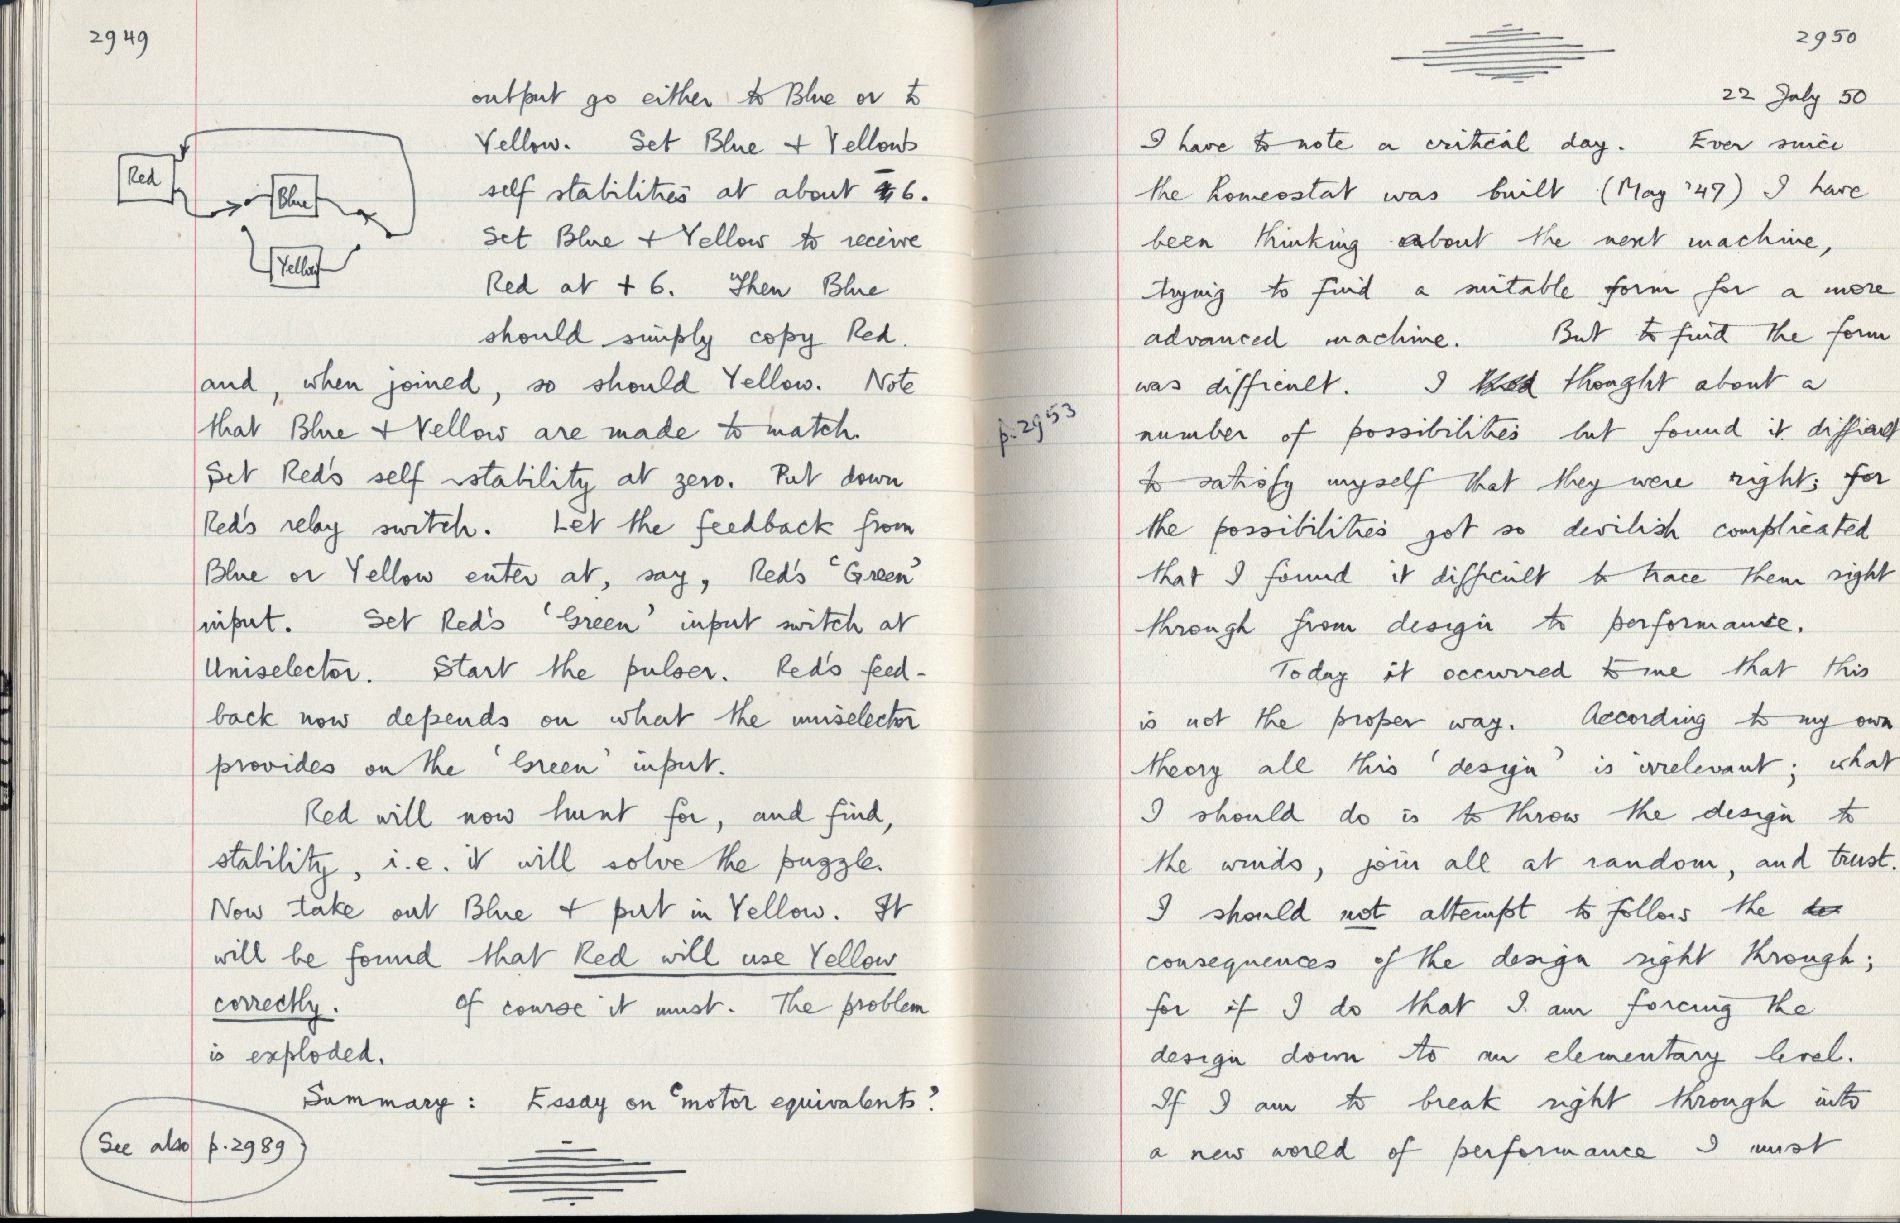 2949
output go either to Blue or to
Yellow. Set Blue + Yellow's
self stabilities at about -6.
Set Blue + Yellow to receive
Red at +6. Then Blue
should simply copy Red.
Red
Blue
Yellow
and, when joined, so should Yellow. Note
that Blue + Yellow are made to match.
Set Red's self-stability at zero. Put down
Red's relay switch. Let the feedback from
Blue or Yellow enter at, say, Red's 'Green'
input. Set Red's 'Green' input switch at
Uniselector. Start the pulser. Red's feed-
back now depends on what the uniselector
provides on the 'Green' input.
Red will now hunt for, and find,
stability, i.e. it will solve the puzzle.
Now take out Blue + put in Yellow. It
will be found that Red will use Yellow
correctly. Of course it must. The problem
is exploded.
Summary: Essay on 'motor equivalents'.
See also p.2989
2950
22 July 50
I have to note a critical day. Ever since
the homeostat was built (May '47) I have
been thinking about the next machine,
trying to find a suitable form for a more
advanced machine. But to find the form
was difficult. I thought about a
number of possibilities but found it difficult
p.2953
to satisfy myself that they were right; for
the possibilities got so devilish complicated
that I found it difficult to trace them right
through from design to performance.
Today it occurred to me that this
is not the proper way. According to my own
theory all this 'design' is irrelevant; what
I should do is to throw the design to
the winds, join all at random, and trust.
I should not attempt to follow the
consequences of the design right through;
for if I do that I am forcing the
design down to an elementary level.
If I am to break right through into
a new world of performance I must